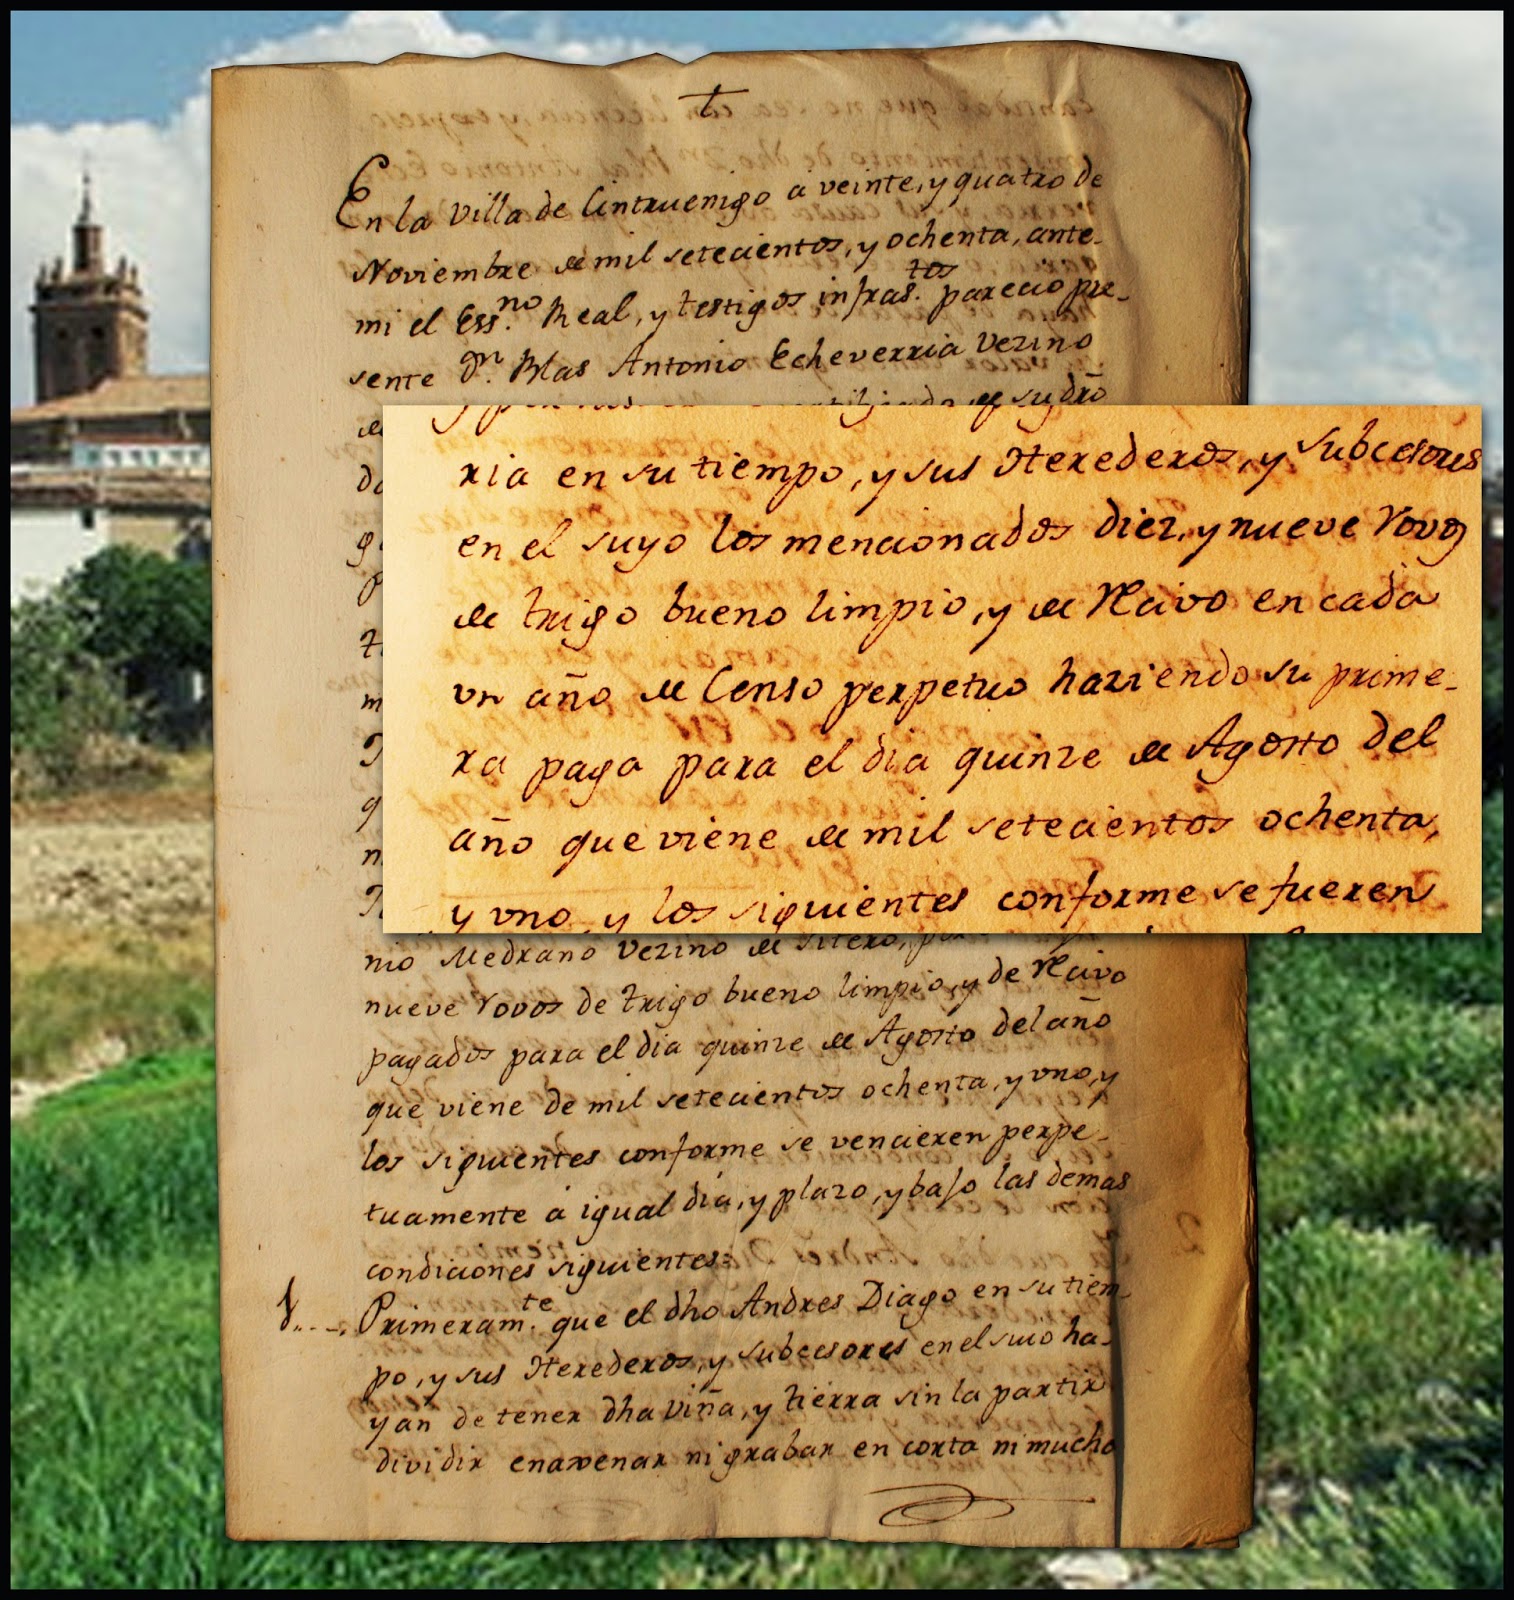 En la Villa de Cintruenigo à veinte, y quatro de
Noviembre de mil setecientos, y ochenta, ante
mi el Ess.no Real, y testigos infras.tos parecio pre-
sente Dn. Blas Antonio Echeverria Vezino
de su dro
ria en su tiempo, y sus Herederos, y Subcesores
en el suyo los mencionados diez, y nueve Rovos
de trigo bueno limpio, y de Recivo en cada
vn año de Censo perpetuo haziendo su prime-
ra paga para el dia quinze de Agosto del
año que viene de mil setecientos ochenta,
y vno, y los siguientes conforme se fueren
nio Medrano Vezino de Fitero,
nueve Rovos de trigo bueno limpio, y de Recivo
pagados para el dia quinze de Agosto del año
que viene de mil setecientos ochenta, y vno, y
los siguientes conforme se vencieren perpe-
tuamente à igual dia, y plazo, y bajo las demas
condiciones siguientes:
1. Primeram.te que el dho Andres Diago en su tiem-
po, y sus Herederos, y Subcesores en el suio ha-
yan de tener dha viña, y tierra sin la partir
dividir enaxenar ni grabar en corta ni mucha